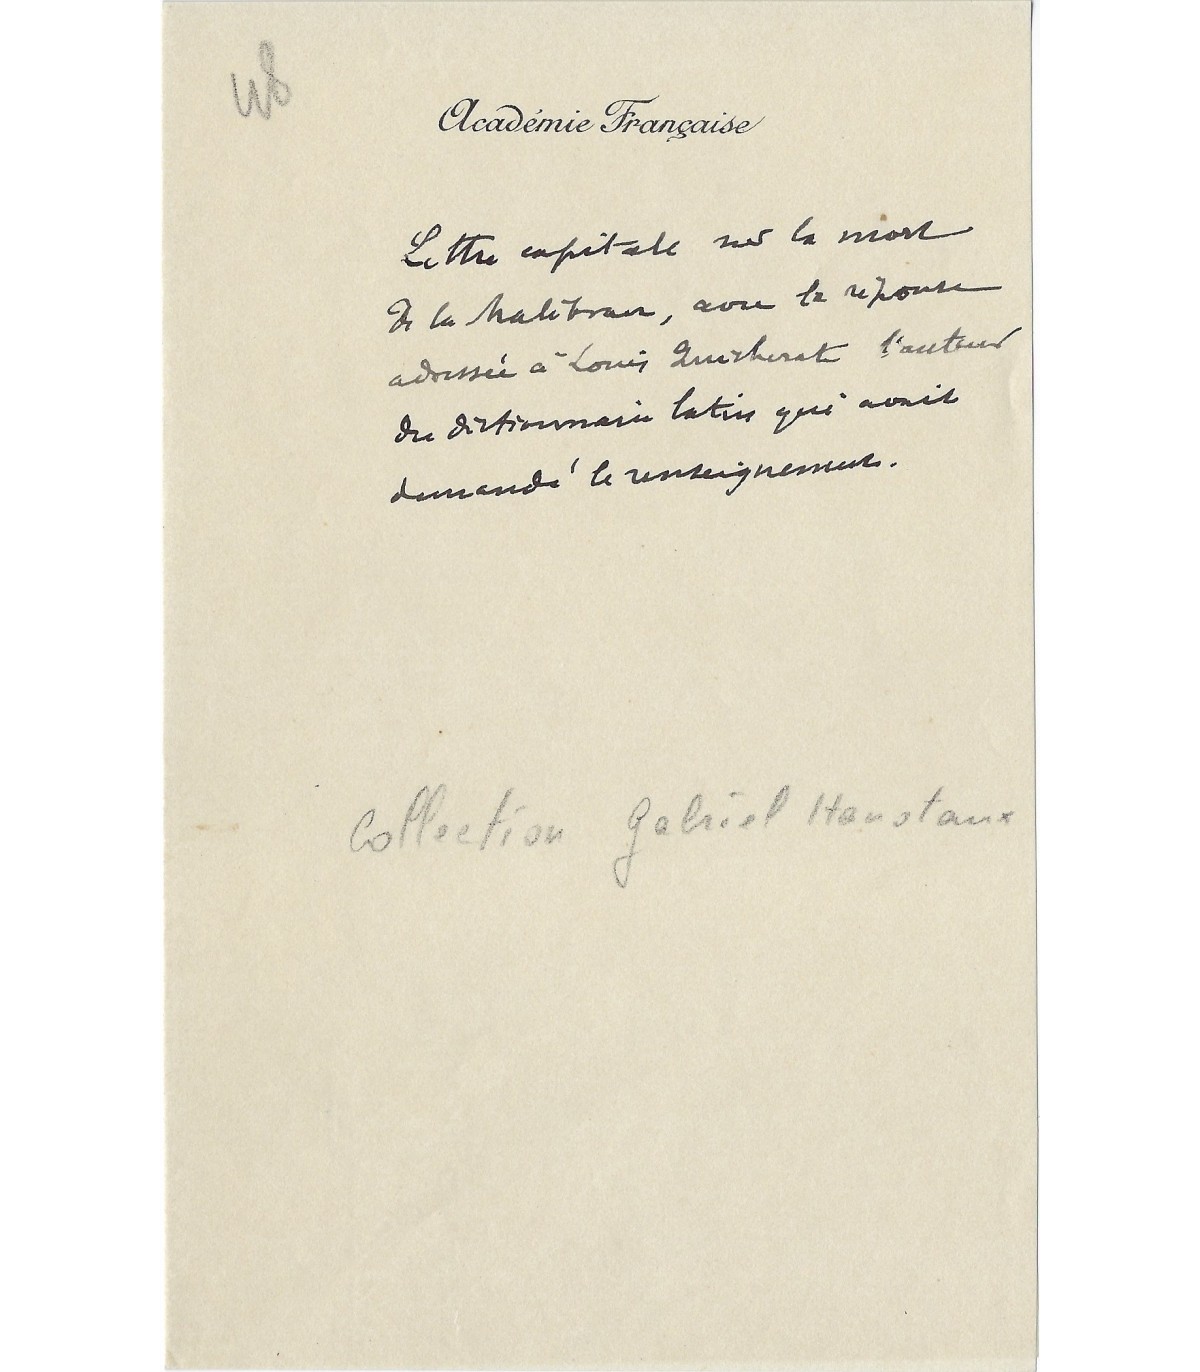 Académie Française
Lettre capitale sur la mort
de la Malibran, avec la réponse
adressée à Louis Quicherat l'auteur
du dictionnaire latin qui avait
demandé le renseignement.
Collection Gabriel Hanotaux